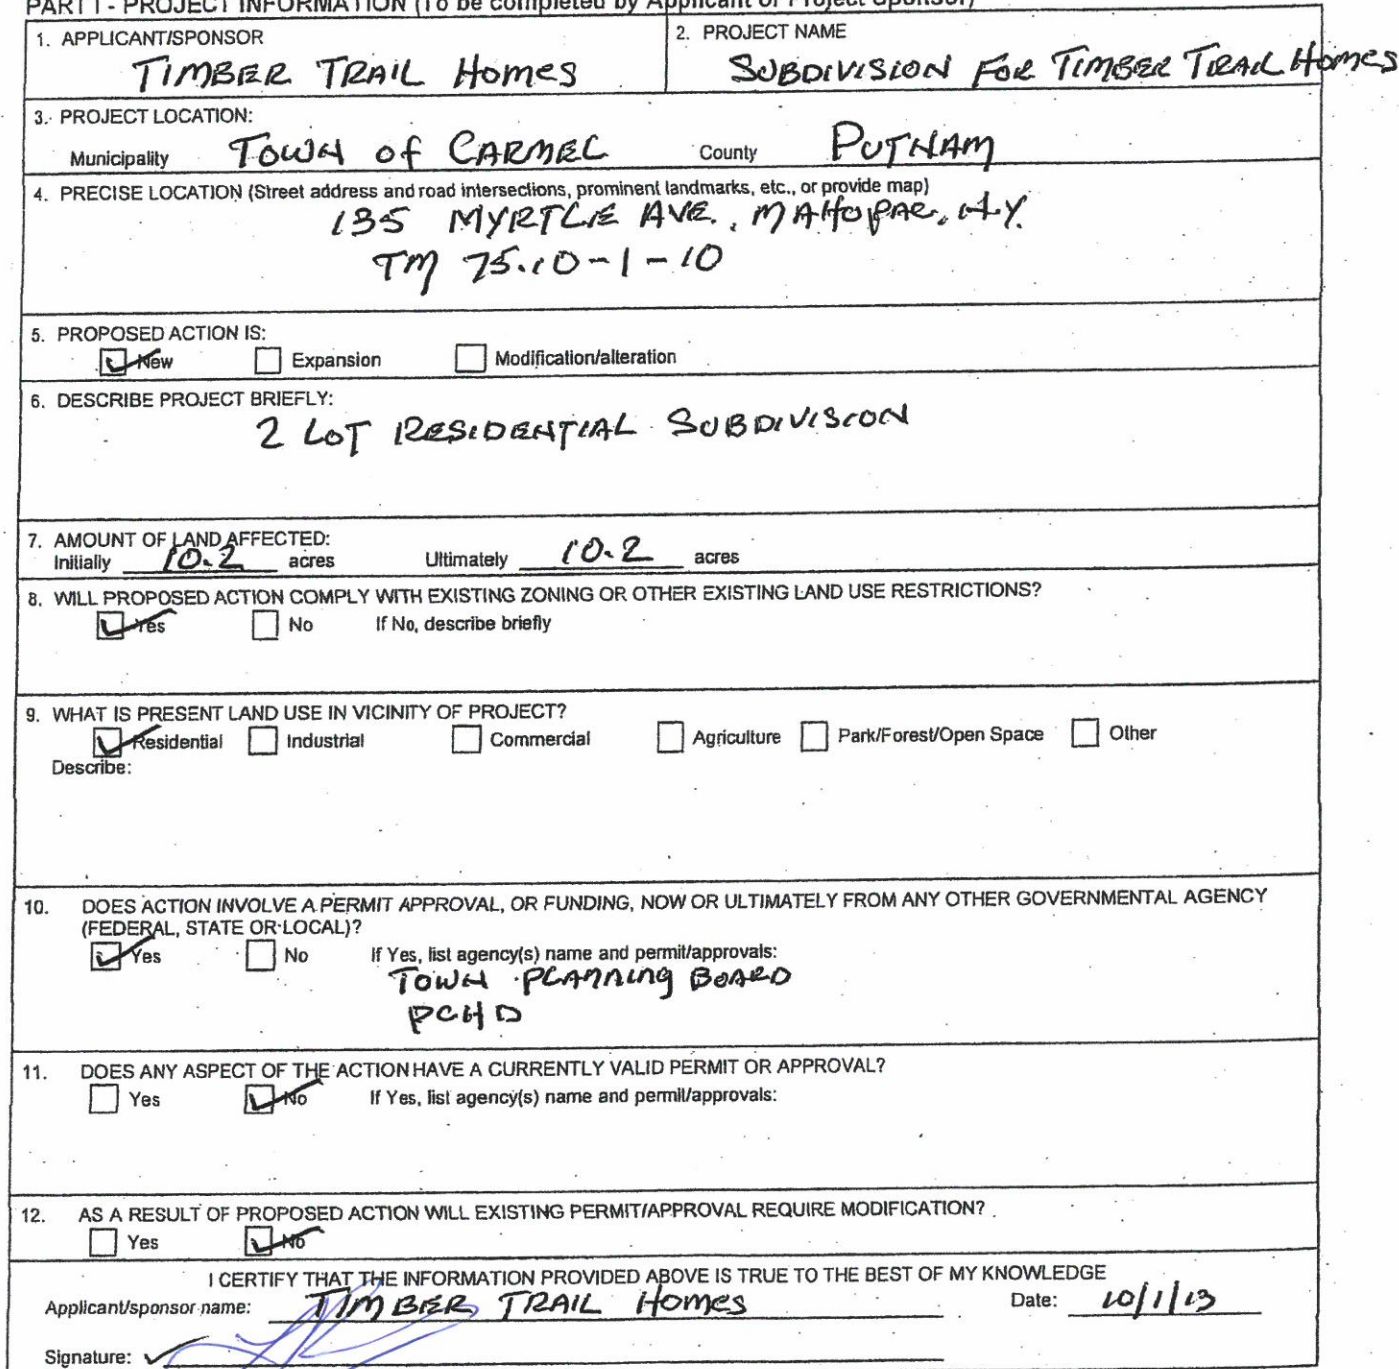 PART I - PROJECT INFORMATION (To be completed by Applicant or Project Sponsor)
1. APPLICANT/SPONSOR
TIMBER TRAIL HOMES
2. PROJECT NAME
SUBDIVISION FOR TIMBER TRAIL HOMES
3. PROJECT LOCATION:
Municipality TOWN of CARMEL County PUTNAM
4. PRECISE LOCATION (Street address and road intersections, prominent landmarks, etc., or provide map)
135 MYRTLE AVE., MAHOPAC, N.Y.
TM 75.10-1-10
5. PROPOSED ACTION IS:
New Expansion Modification/alteration
6. DESCRIBE PROJECT BRIEFLY:
2 LOT RESIDENTIAL SUBDIVISION
7. AMOUNT OF LAND AFFECTED:
Initially 10.2 acres Ultimately 10.2 acres
8. WILL PROPOSED ACTION COMPLY WITH EXISTING ZONING OR OTHER EXISTING LAND USE RESTRICTIONS?
Yes No If No, describe briefly
9. WHAT IS PRESENT LAND USE IN VICINITY OF PROJECT?
Residential Industrial Commercial Agriculture Park/Forest/Open Space Other
Describe:
10. DOES ACTION INVOLVE A PERMIT APPROVAL, OR FUNDING, NOW OR ULTIMATELY FROM ANY OTHER GOVERNMENTAL AGENCY
(FEDERAL, STATE OR LOCAL)?
Yes No If Yes, list agency(s) name and permit/approvals:
TOWN PLANNING BOARD
PCHD
11. DOES ANY ASPECT OF THE ACTION HAVE A CURRENTLY VALID PERMIT OR APPROVAL?
Yes No If Yes, list agency(s) name and permit/approvals:
12. AS A RESULT OF PROPOSED ACTION WILL EXISTING PERMIT/APPROVAL REQUIRE MODIFICATION?
Yes No
I CERTIFY THAT THE INFORMATION PROVIDED ABOVE IS TRUE TO THE BEST OF MY KNOWLEDGE
Applicant/sponsor name: TIMBER TRAIL HOMES Date: 10/1/13
Signature: